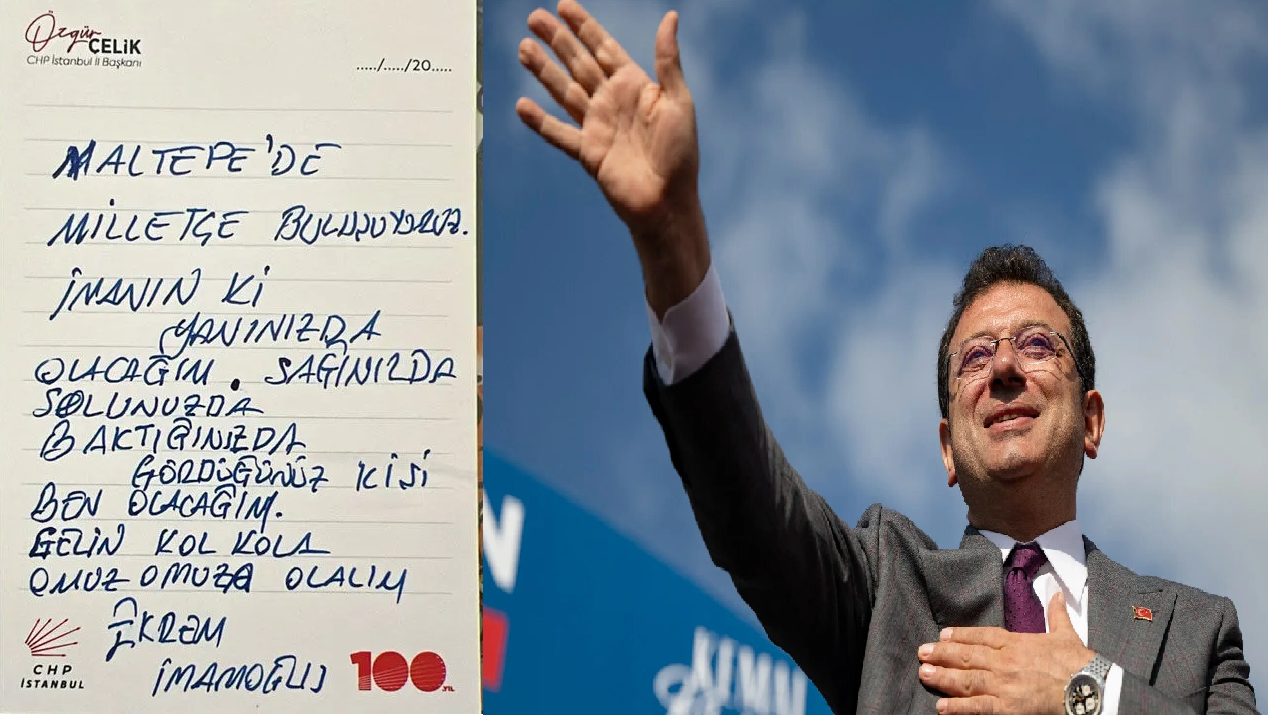 Özgür
ÇELİK
CHP İstanbul İl Başkanı
...../...../20.....
MALTEPE'DE
MİLLETÇE BULUŞUYORUZ.
İNANIN Kİ
YANINIZDA
OLACAĞIM. SAĞINIZDA
SOLUNUZDA
BAKTIĞINIZDA
GÖRDÜĞÜNÜZ KİŞİ
BEN OLACAĞIM.
GELİN KOL KOLA
OMUZ OMUZA OLALIM
EKREM
İMAMOĞLU
CHP
İSTANBUL
100.YIL
N
KEMAL